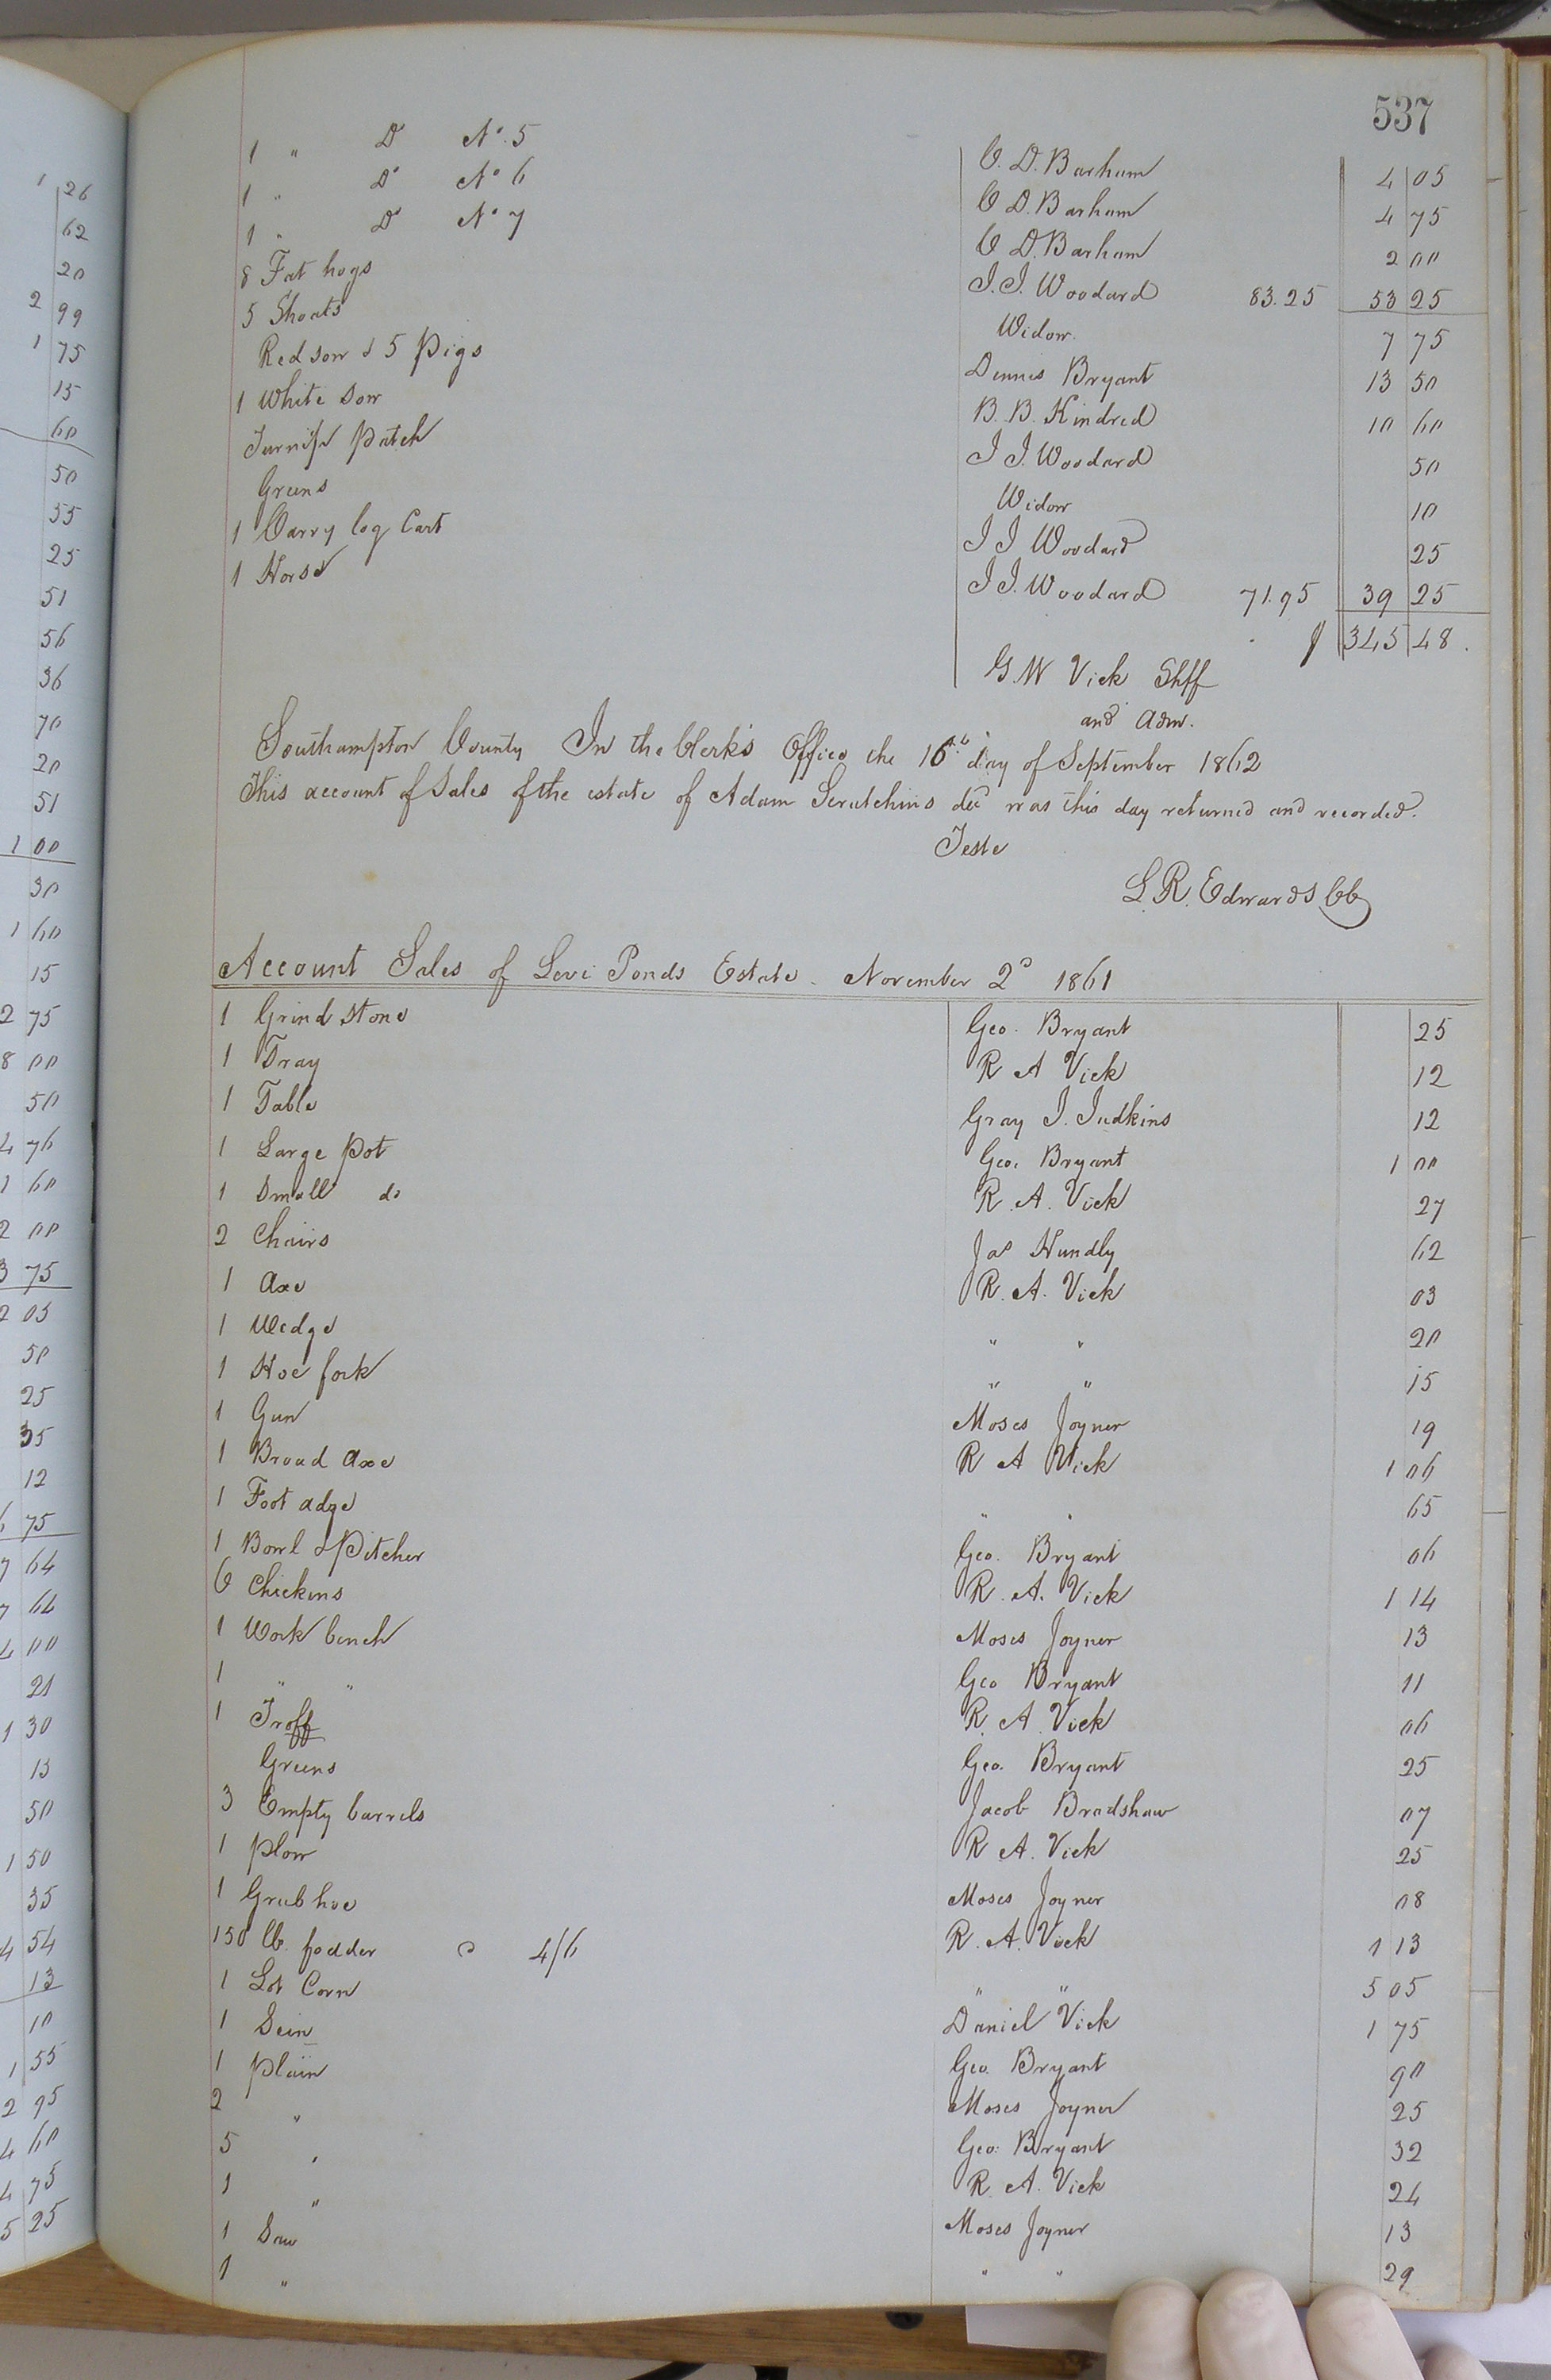 537
1 " Do No. 5 C. D. Barham 4 05
1 " Do No 6 C D. Barham 4 75
1 " Do No 7 C D. Barham 2 00
8 Fat hogs J. J. Woodard 83.25 53 25
5 Shoats Widow 7 75
Red sow & 5 Pigs Dennis Bryant 13 50
1 White Sow B. B. Kindred 10 60
Turnip Patch J J. Woodard 50
Greens Widow 10
1 Carry log Cart J J Woodard 25
1 Horse J J. Woodard 71.95 39 25
$ 345 48.
G. W Vick Shff
and Adm.
Southampton County In the Clerk's Office the 16th day of September 1862
This account of Sales of the estate of Adam Scrutchins decd was this day returned and recorded.
Teste
L. R. Edwards CC
Account Sales of Levi Ponds Estate. November 2d 1861
1 Grind Stone Geo. Bryant 25
1 Tray R A Vick 12
1 Table Gray J. Judkins 12
1 Large Pot Geo. Bryant 1 00
1 Small do R. A. Vick 27
2 Chairs Jas Hundly 62
1 Axe R. A. Vick 03
1 Wedge " " 20
1 Hoe fork " " 15
1 Gun Moses Joyner 19
1 Broad Axe R A Vick 1 06
1 Foot adge " " 65
1 Bowl & Pitcher Geo. Bryant 06
6 Chickens R. A. Vick 1 14
1 Work bench Moses Joyner 13
1 " " Geo Bryant 11
1 Troff R. A. Vick 06
Greens Geo. Bryant 25
3 Empty barrels Jacob Bradshaw 07
1 Plow R A. Vick 25
1 Grub hoe Moses Joyner 08
150 lb. fodder @ 4/6 R. A. Vick 1 13
1 Lot Corn " " 5 05
1 Sein Daniel Vick 1 75
1 Plain Geo. Bryant 90
2 " Moses Joyner 25
5 " Geo. Bryant 32
1 " R. A. Vick 24
1 Saw Moses Joyner 13
1 " " " 29